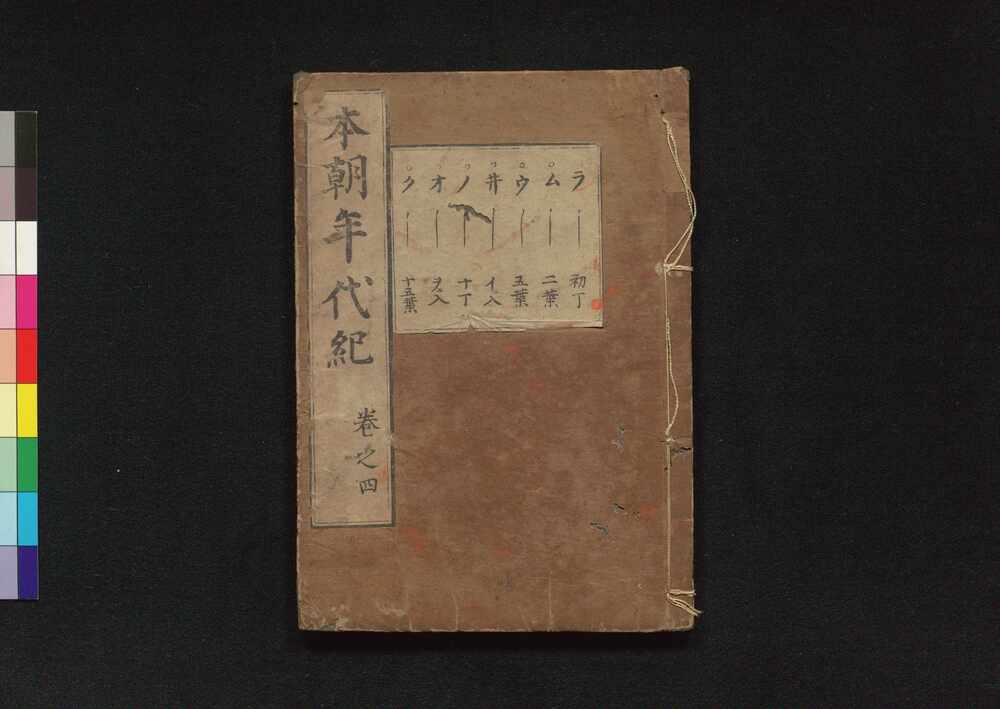 本朝年代紀 巻之四
ラ 初丁
ム 二葉
ウ 五葉
井 イノ八
ノ 十丁
オ ヲノ八
ク 十五葉